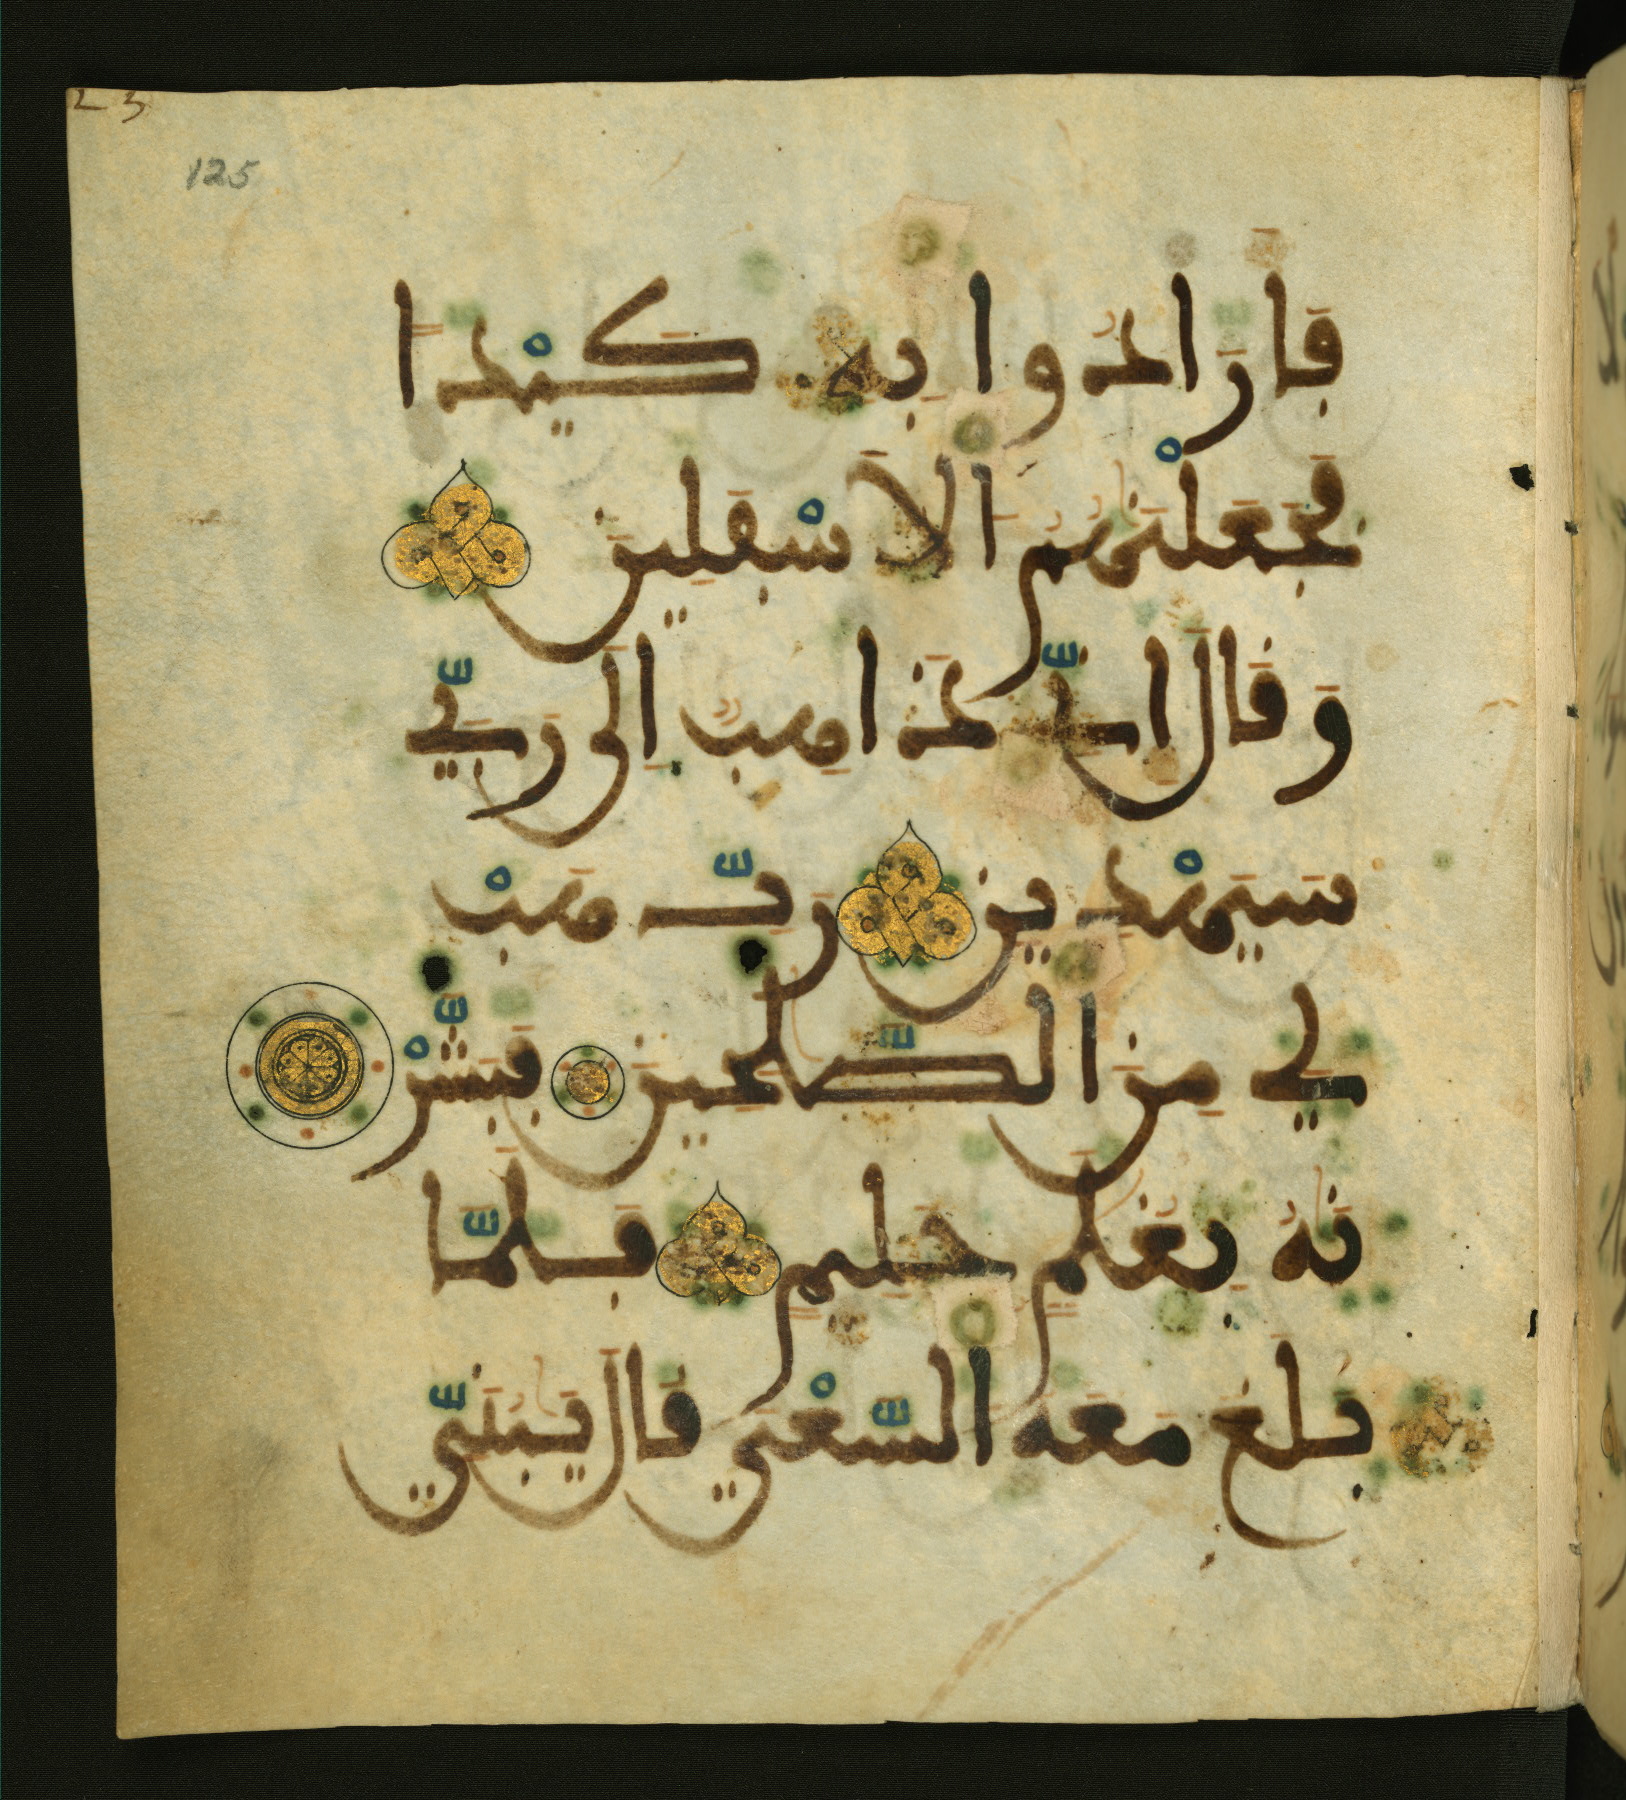 23
125
فَأَرَادُوا بِهِ كَيْدًا
فَجَعَلْنَٰهُمُ الْأَسْفَلِينَ
وَقَالَ إِنِّي ذَاهِبٌ إِلَىٰ رَبِّي
سَيَهْدِينِ رَبِّ هَبْ
لِي مِنَ الصَّٰلِحِينَ فَبَشَّرْ
نَٰهُ بِغُلَٰمٍ حَلِيمٍ فَلَمَّا
بَلَغَ مَعَهُ السَّعْيَ قَالَ يَٰبُنَيِّ